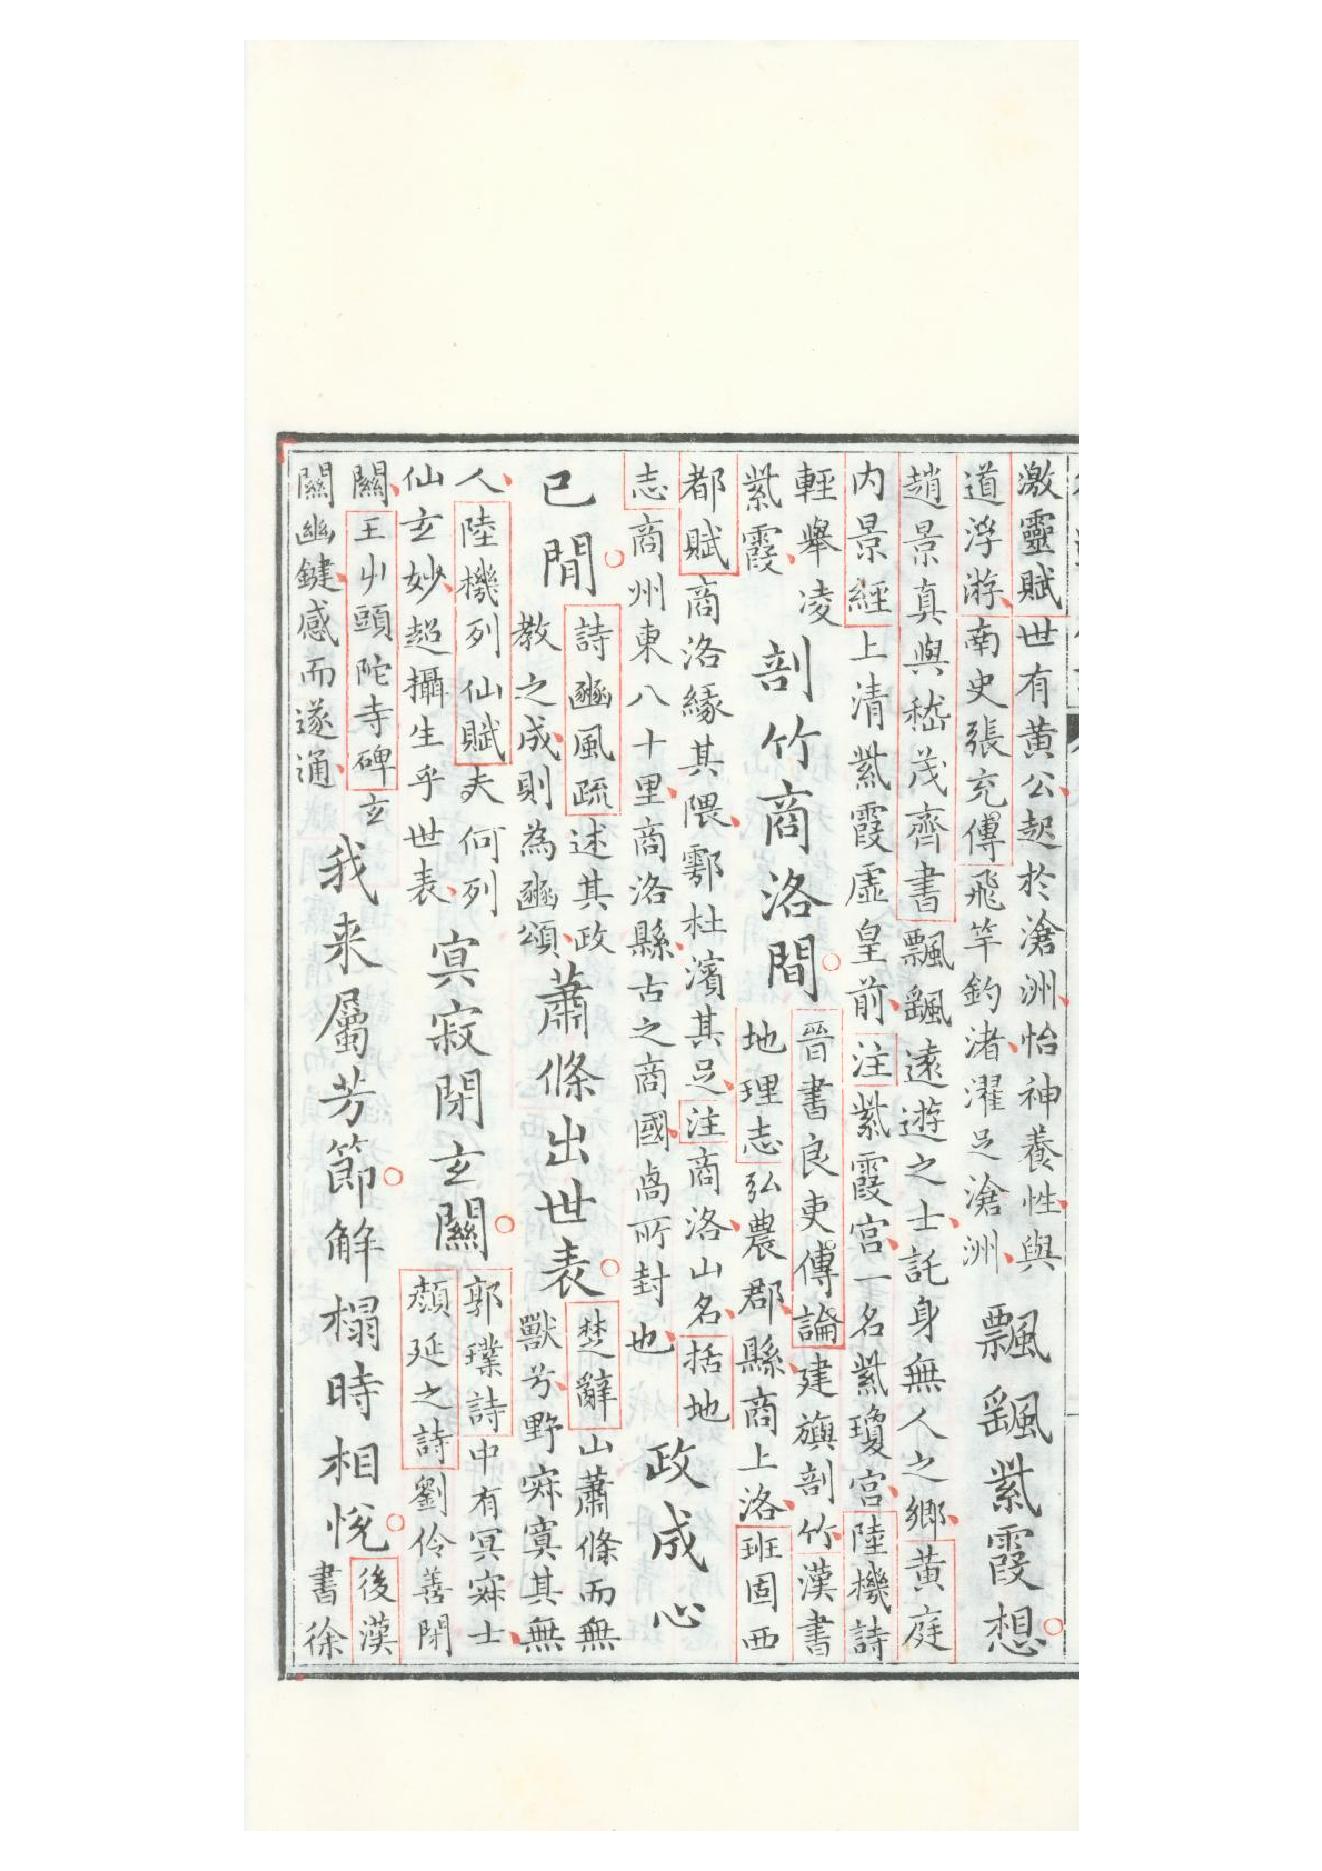 激靈賦世有黃公起於滄洲怡神養性與
道浮游南史張充傅飛竿釣渚濯足滄洲
飄颻紫霞想
趙景真與嵇茂齊書飄颻遠遊之士託身無人之鄉黃庭
内景經上清紫霞虛皇前注紫霞宮一名紫瓊宮陸機詩
輕舉凌
紫霞
剖竹商洛間
晉書良吏傳論建旟剖竹漢書
地理志弘農郡縣商上洛班固西
都賦商洛緣其隈鄠杜濱其足注商洛山名括地
志商州東八十里商洛縣古之商國卨所封也
政成心
已閒
詩豳風疏述其政
教之成則為豳頌
蕭條出世表
楚辭山蕭條而無
獸兮野寂寞其無
人陸機列仙賦夫何列
仙玄妙超攝生乎世表
冥寂閉玄關
郭璞詩中有冥寂士
顏延之詩劉伶善閉
關王屮頭陀寺碑玄
關幽鍵感而遂通
我来屬芳節解榻時相悅
後漢
書徐